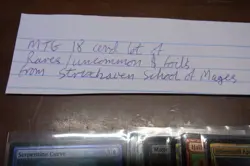 MTG 18 card lot of
Rares/uncommon & foils
from Strixhaven School of Mages